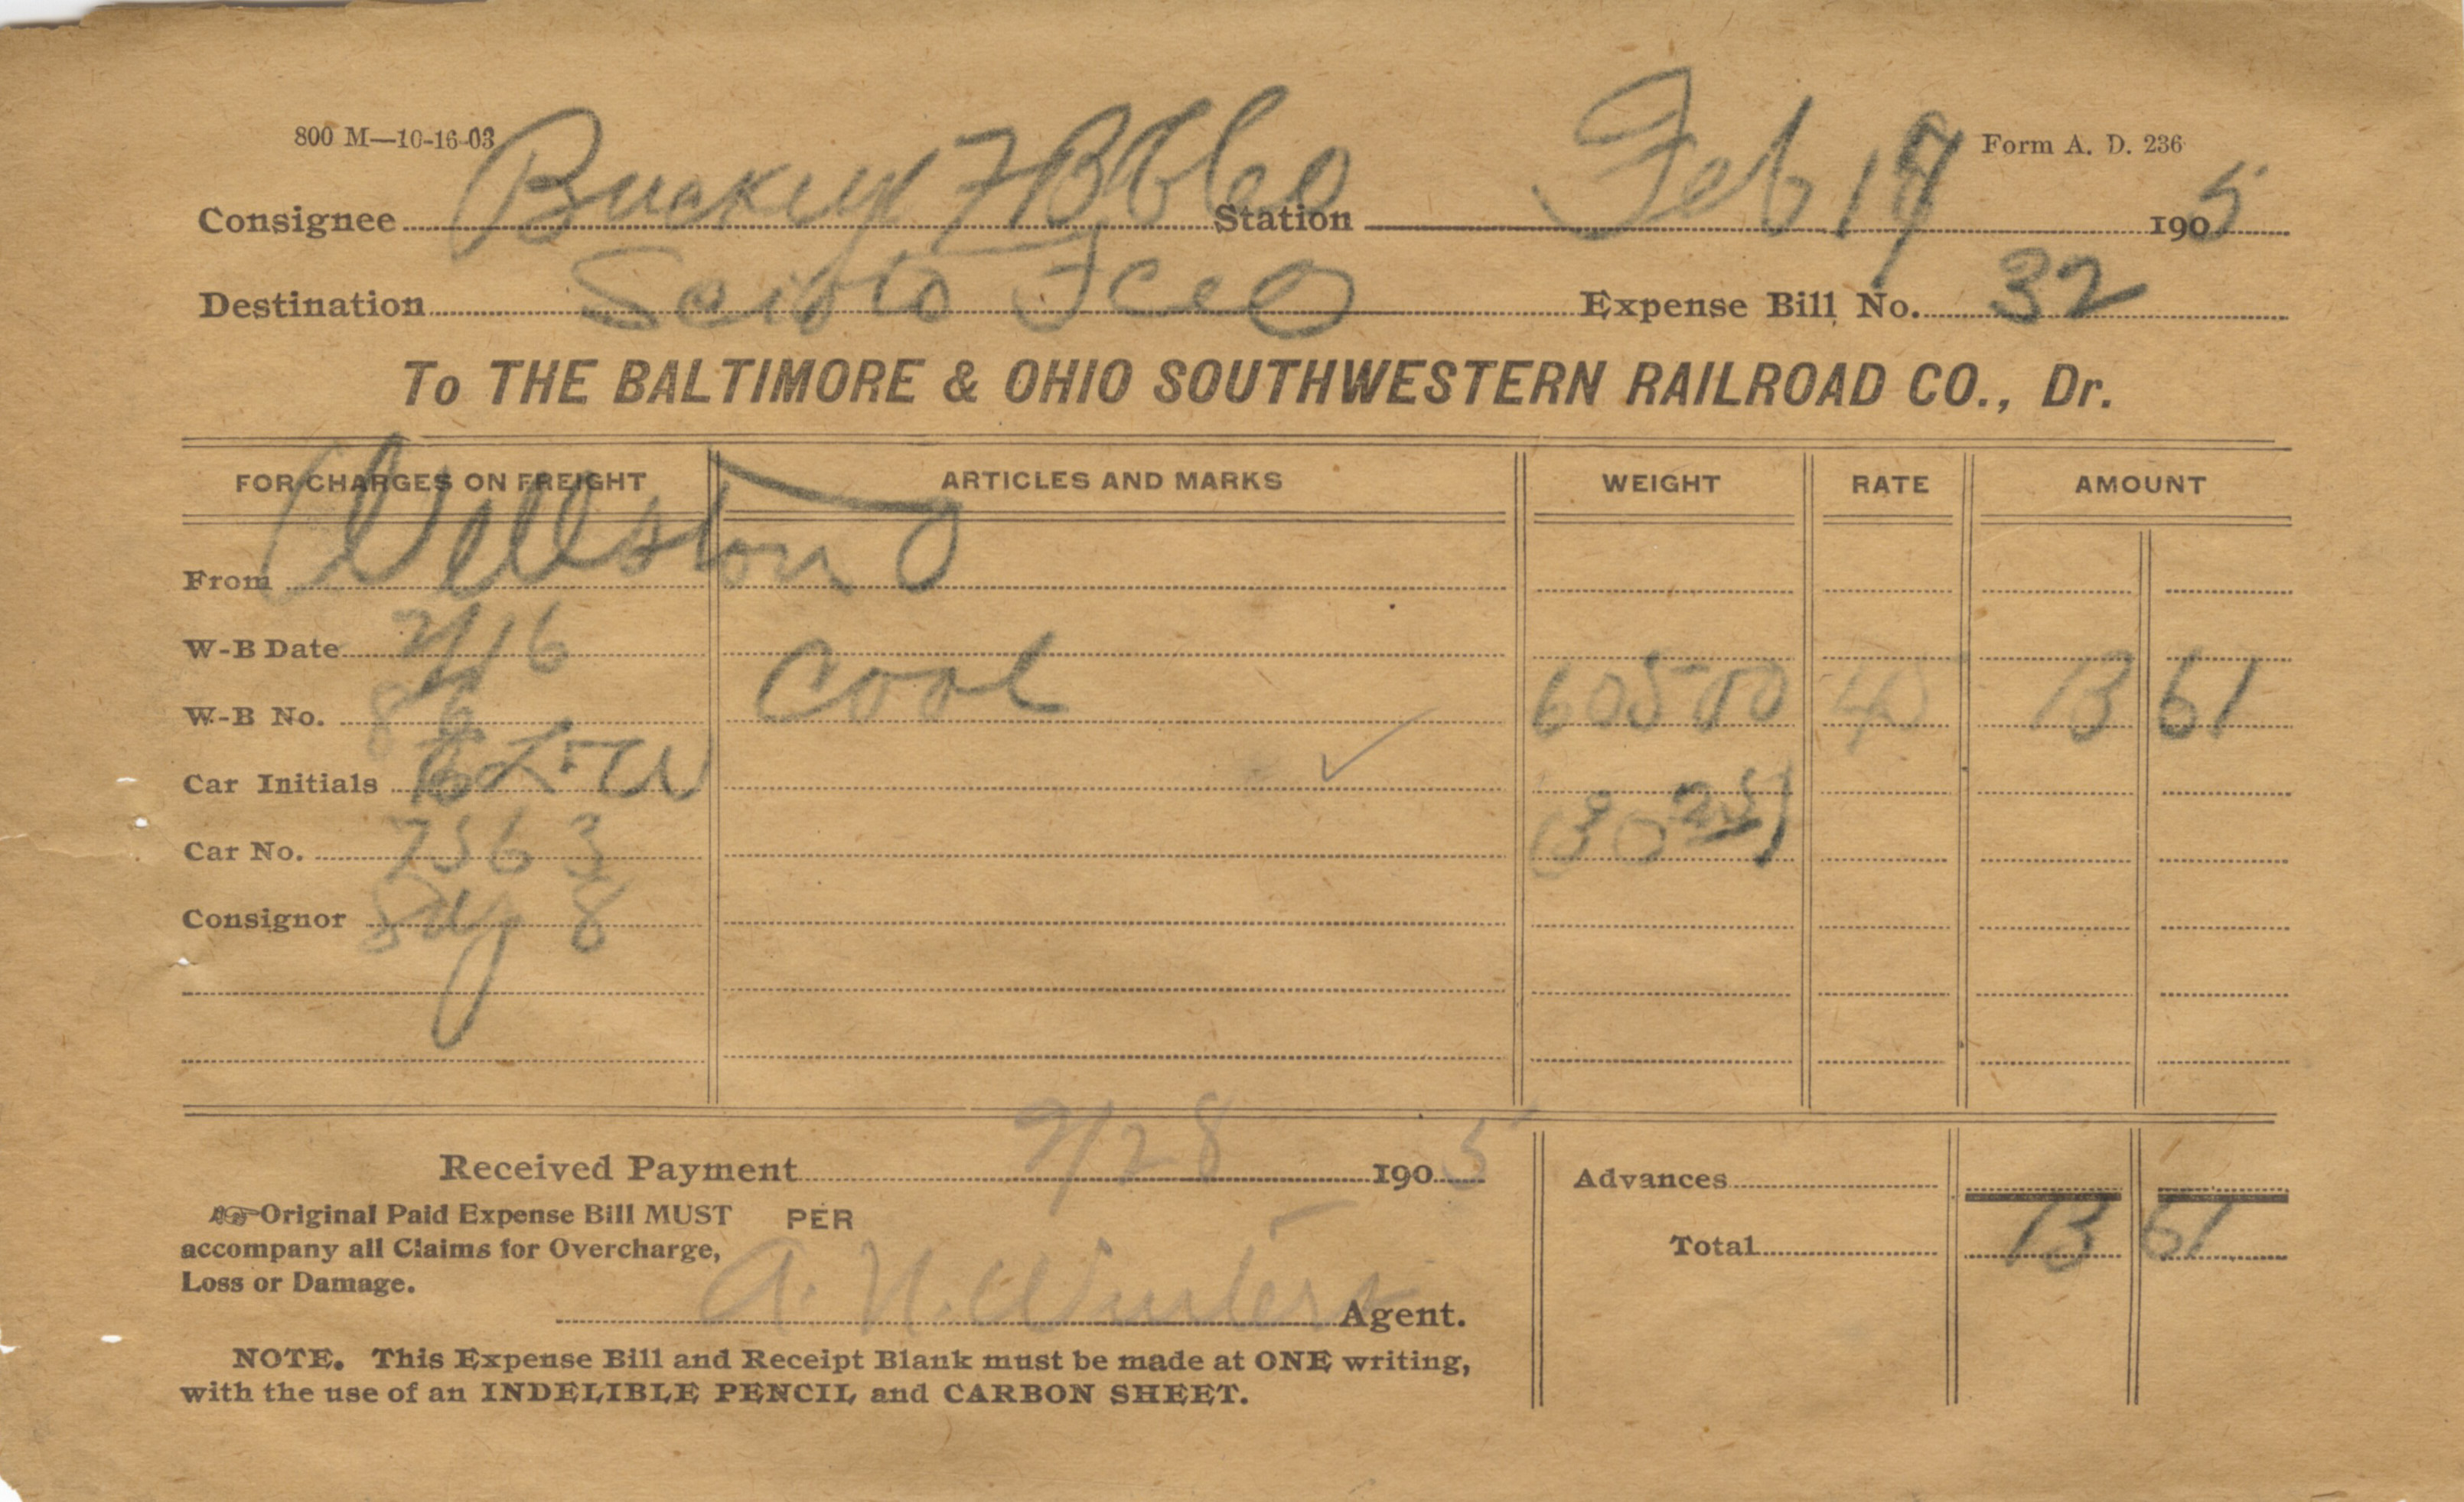 800 M—10-16-03
Form A. D. 236
Consignee Buckeye Station Feb 1905
Destination Scioto Expense Bill No. 32
To THE BALTIMORE & OHIO SOUTHWESTERN RAILROAD CO., Dr.
FOR CHARGES ON FREIGHT ARTICLES AND MARKS WEIGHT RATE AMOUNT
From Wellston O
W-B Date 2/16
W-B No. 86 Cool 60500 40 13 61
Car Initials
Car No. 7563 (30 25)
Consignor 8
Received Payment 2/28 1905 Advances
☞Original Paid Expense Bill MUST PER
accompany all Claims for Overcharge, Total 13 61
Loss or Damage.
A. N. Winters Agent.
NOTE. This Expense Bill and Receipt Blank must be made at ONE writing,
with the use of an INDELIBLE PENCIL and CARBON SHEET.